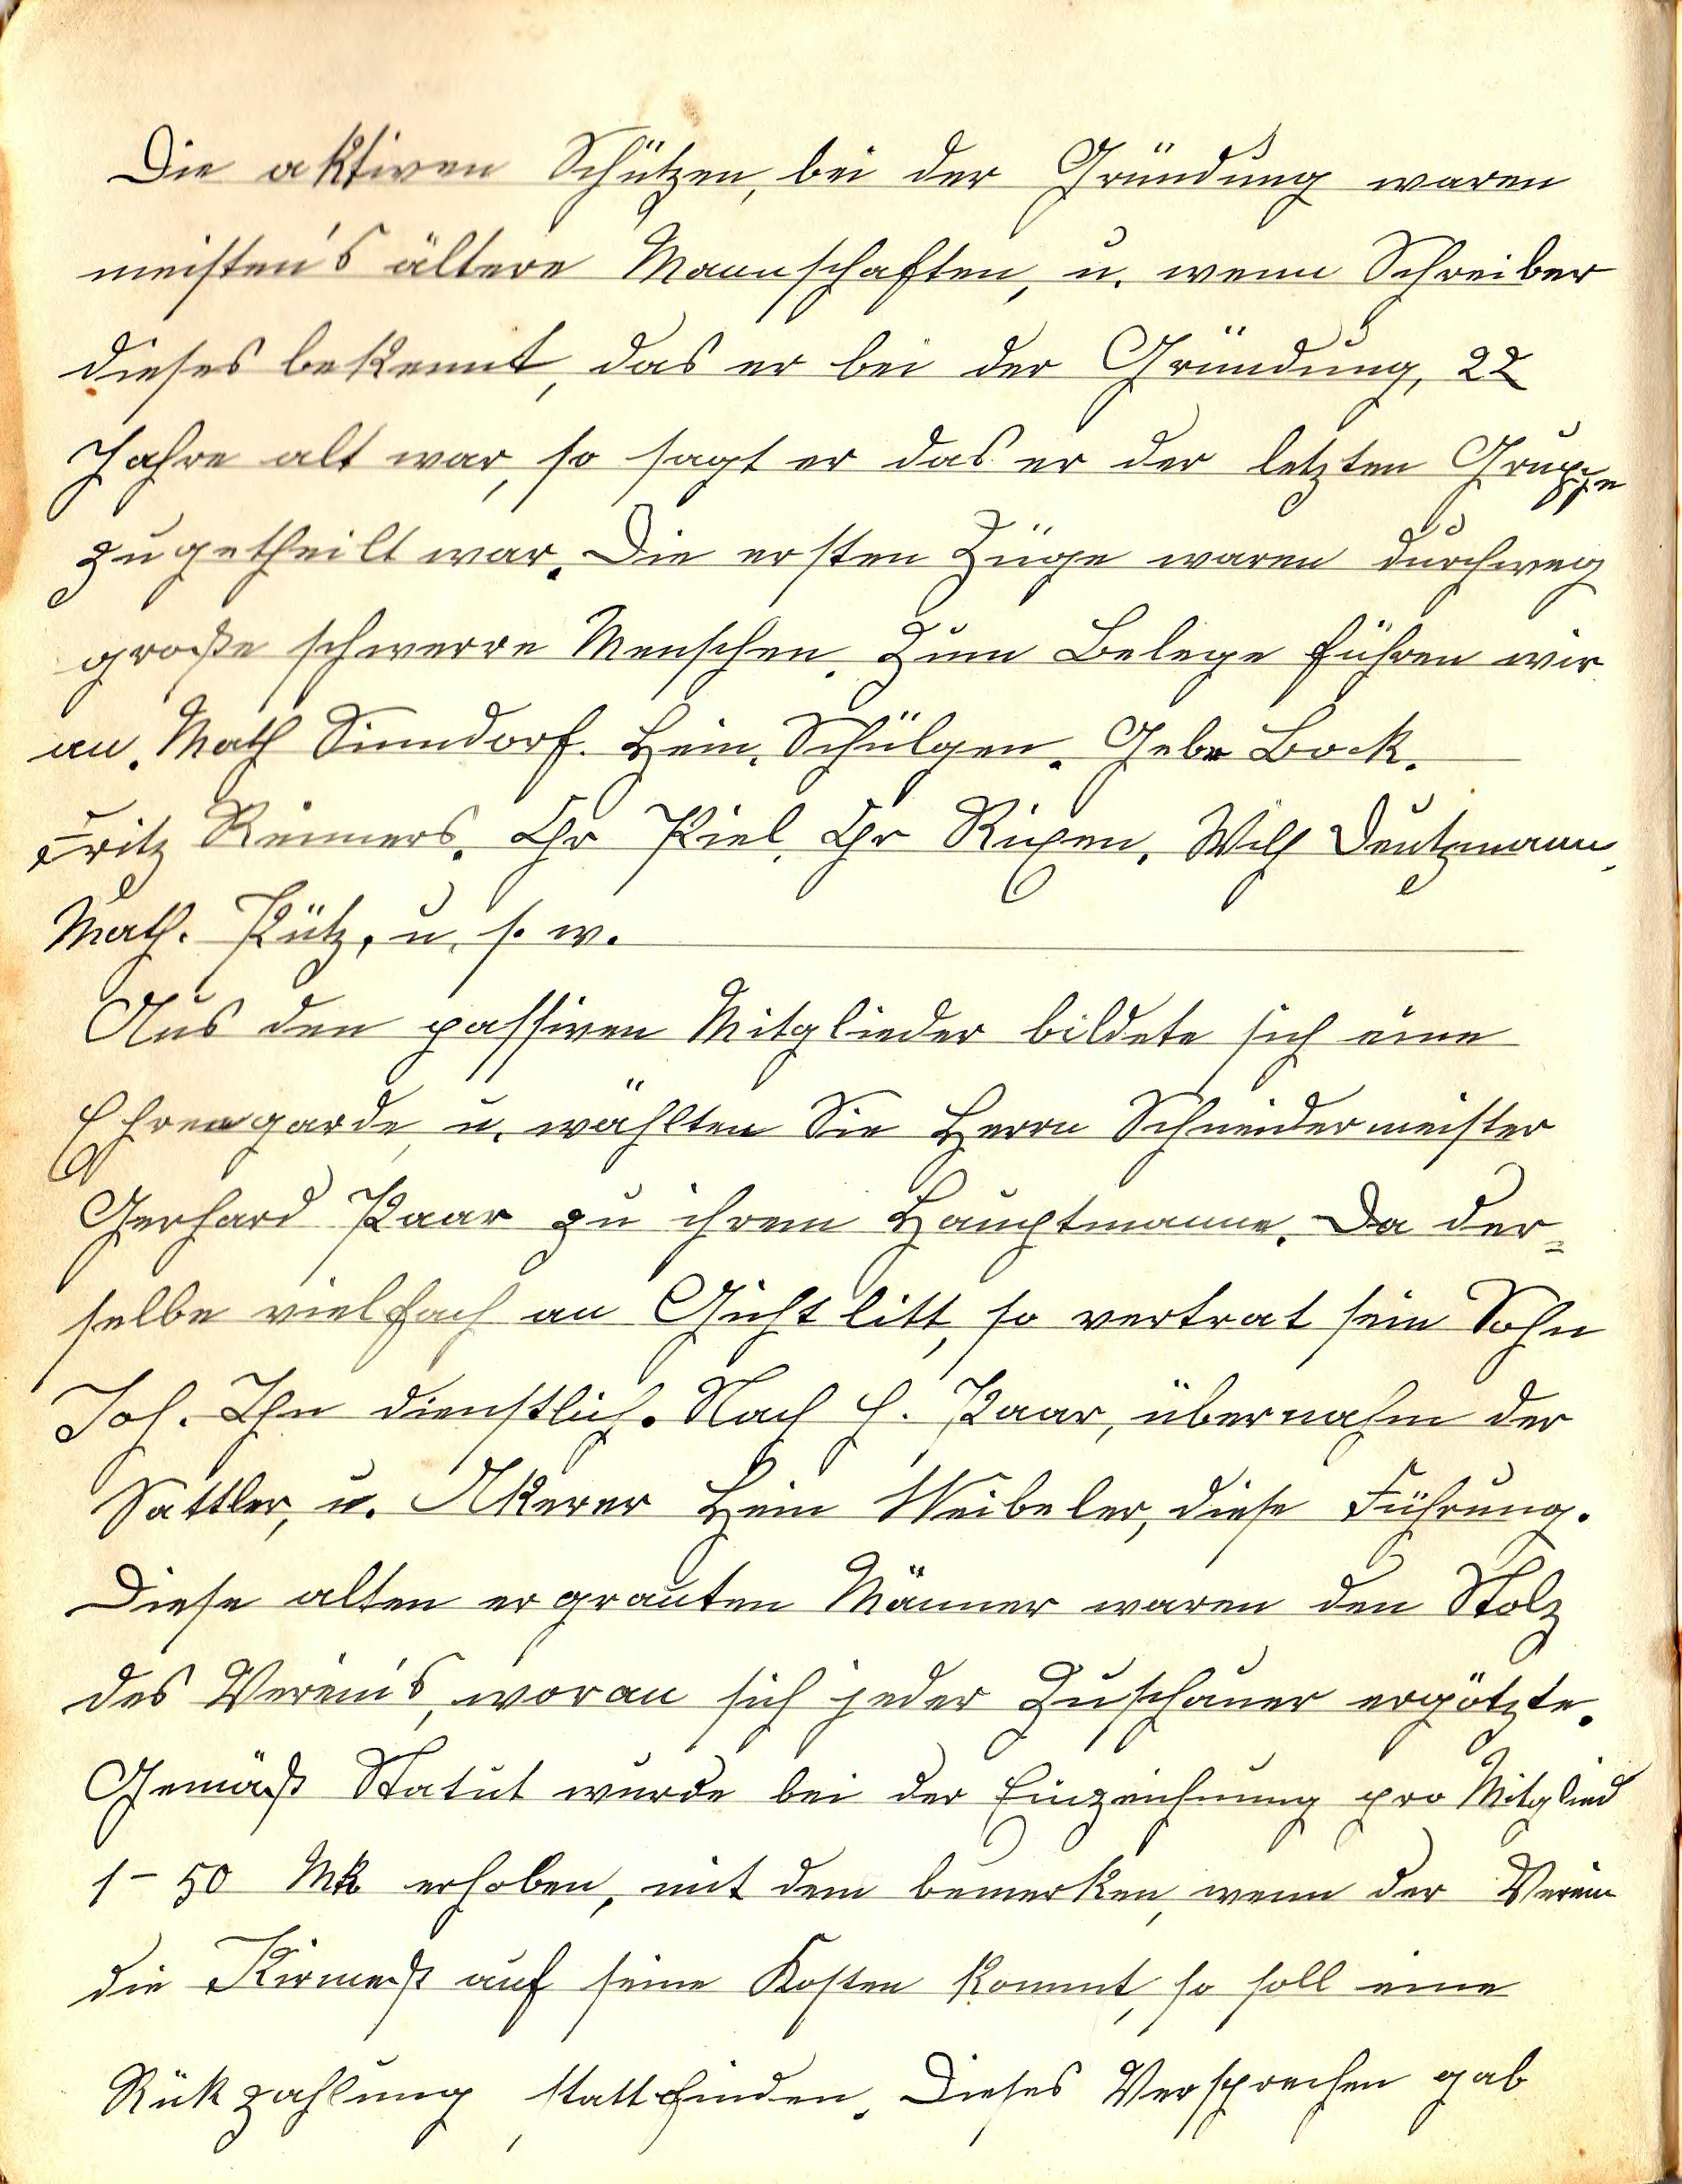 Die aktiven Schützen, bei der Gründung waren
meisten's ältere Mannschaften, u. wenn Schreiber
dieses bekennt, das er bei der Gründung, 22
Jahre alt war, so sagt er das er der letzten Gruppe
zugetheilt war. Die ersten Züge waren durchweg
große schwerre Menschen. Zum Belege führen wir
an. Math Sinndorf. Hein. Schülgen. Gebr Bock.
Fritz Reimers. Chr Piel. Chr Rixen. Wilh Deutzmann.
Math. Pütz, u. s. w.
Aus den passiven Mitglieder bildete sich eine
Ehrengarde, u. wählten Sie Herrn Schneidermeister
Gerhard Paar zu ihrem Hauptmanne. Da der=
selbe vielfach an Gicht litt, so vertrat sein Sohn
Joh. Ihn dienstlich. Nach H. Paar, übernahm der
Sattler, u. Akerer Hein Weibeler, diese Führung.
Diese alten ergrauten Männer waren den Stolz
des Verein's, woran sich jeder Zuschauer ergötzte.
Gemäß Statut wurde bei der Einzeichnung pro Mitglied
1-50 Mk erhoben, mit dem bemerken, wenn der Verein
die Kirmeß auf seine Kosten kommt, so soll eine
Rükzahlung stattfinden. Dieses Versprechen gab